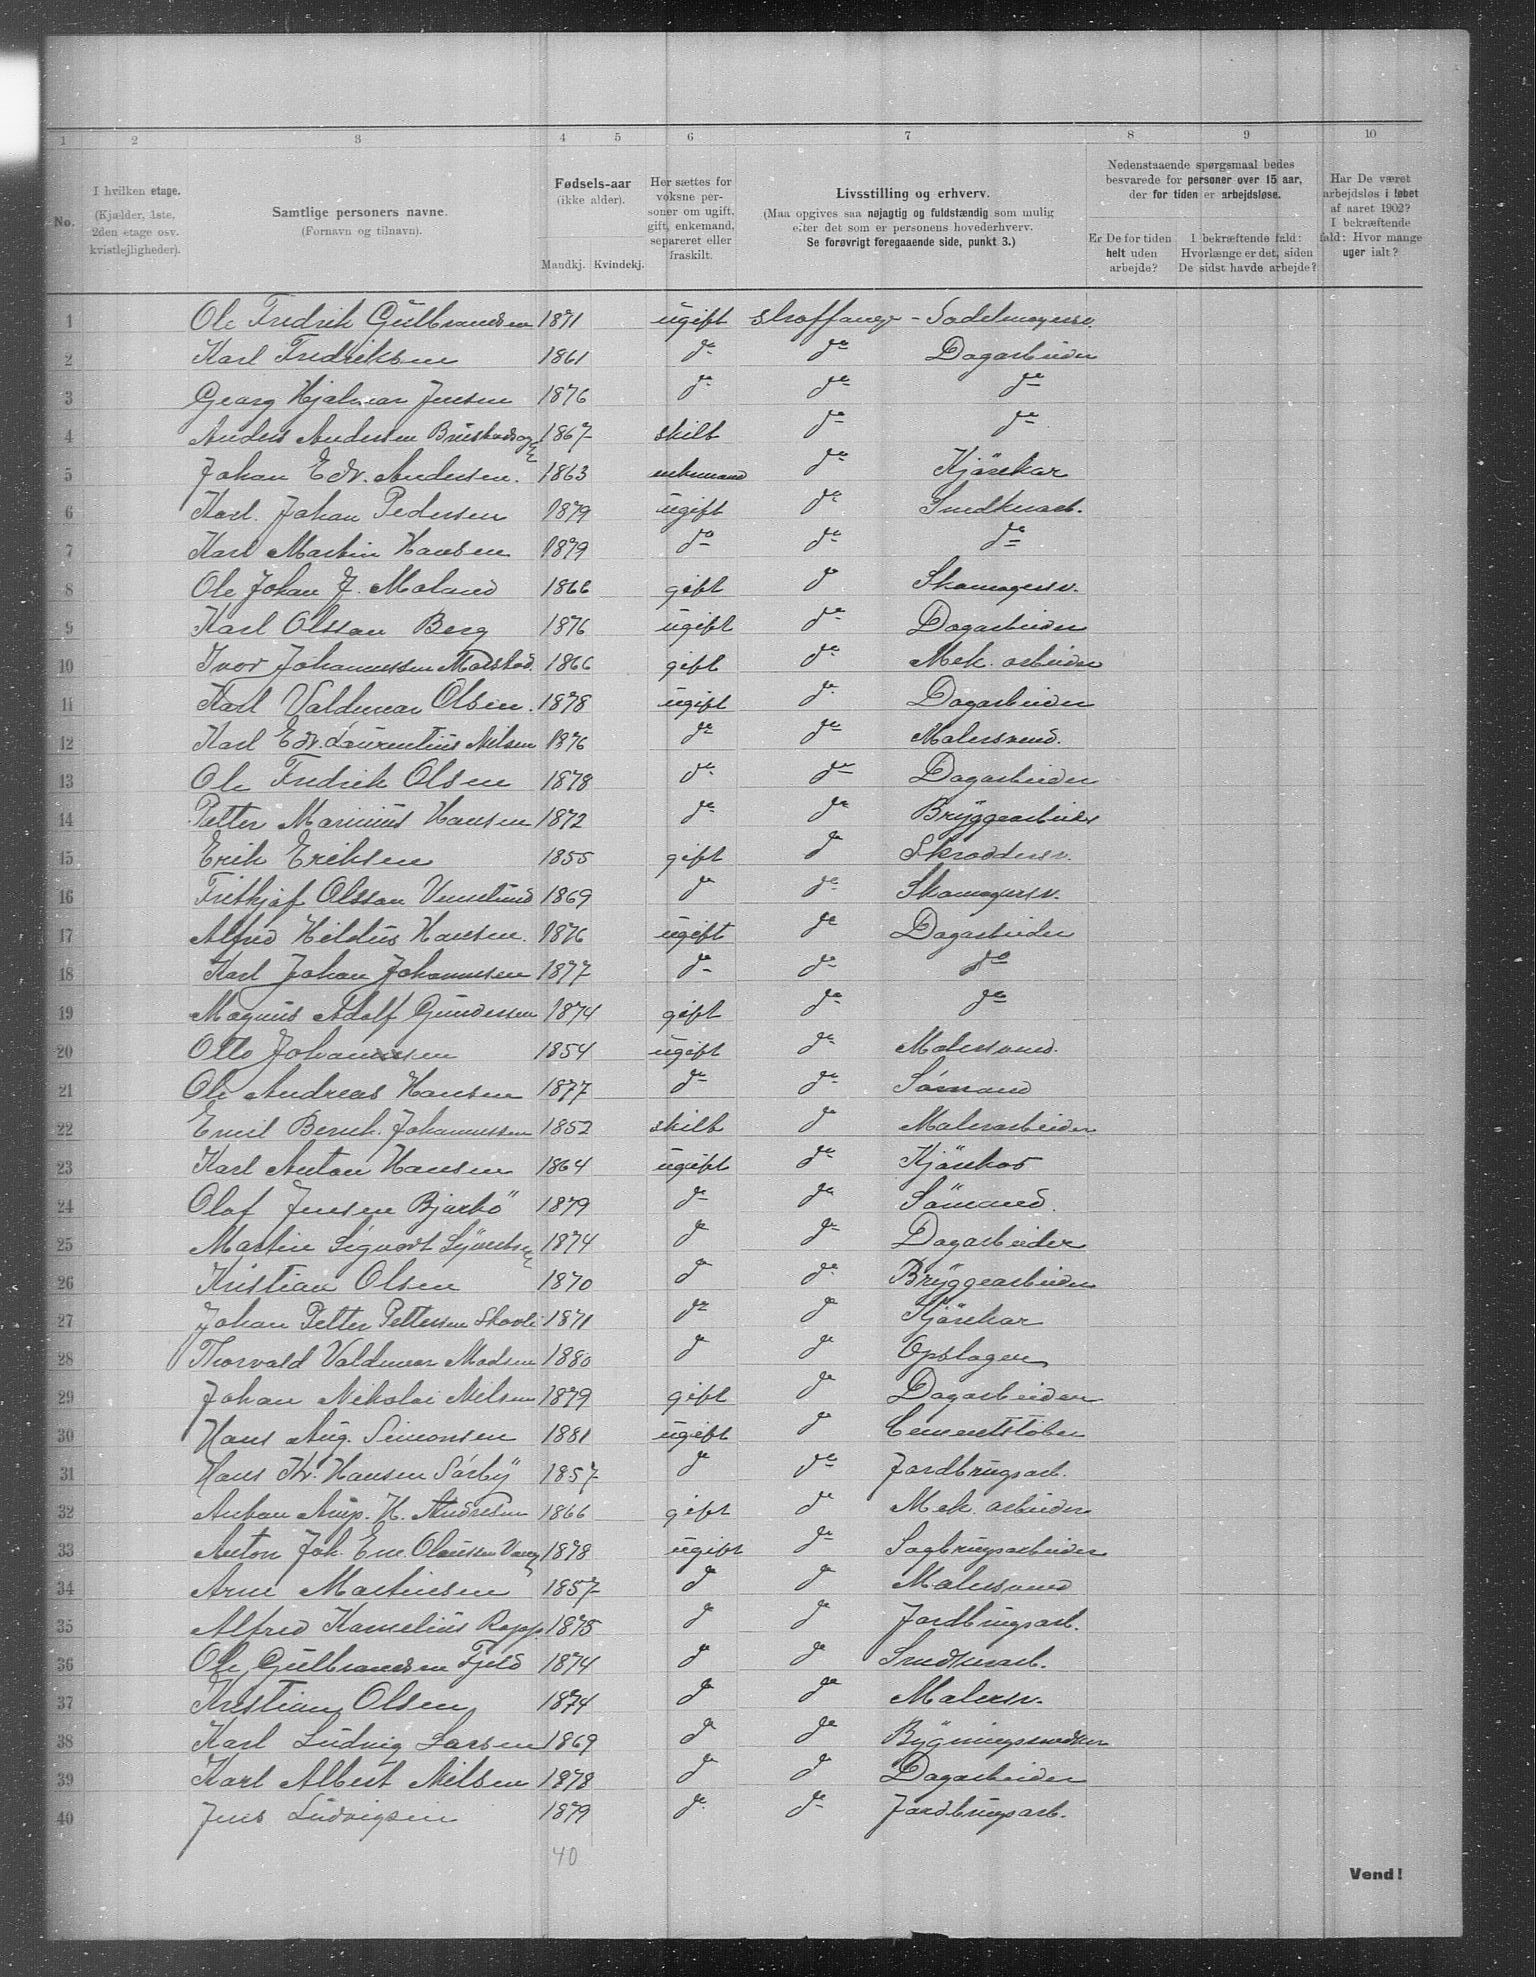 1 2 3 4 5 6 7 8 9 10
No.
I hvilken etage.
(Kjælder, 1ste, 2den etage osv. kvistlejligheder).
Samtlige personers navne.
(Fornavn og tilnavn).
Fødsels-aar
(ikke alder).
Mandkj. Kvindekj.
Her sættes for voksne personer om ugift, gift, enkemand, separeret eller fraskilt.
Livsstilling og erhverv.
(Maa opgives saa nøjagtig og fuldstændig som mulig efter det som er personens hovederhverv. Se forøvrigt foregaaende side, punkt 3.)
Nedenstaaende spørgsmaal bedes besvarede for personer over 15 aar, der for tiden er arbejdsløse.
Er De for tiden helt uden arbejde?
I bekræftende fald: Hvorlænge er det, siden De sidst havde arbejde?
Har De været arbejdsløs i løbet af aaret 1902? I bekræftende fald: Hvor mange uger ialt?
1 Ole Fredrik Gulbrandsen 1871 ugift straffange - Sadelmagersv.
2 Karl Fredriksen 1861 do do Dagarbeider
3 Georg Hjalmar Jensen 1876 do do do
4 Anders Andersen 1867 skilt do do
5 Johan Edv. Andersen. 1863 enkemand do Kjørekar
6 Karl Johan Pedersen 1879 ugift do Snedkerarb.
7 Karl Martin Hansen 1879 do do do
8 Ole Johan J. Moland 1866 gift do Skomagersv.
9 Karl Olsson Berg 1876 ugift do Dagarbeider
10 Ivor Johannessen 1866 gift do Mek. arbeider
11 Karl Valdemar Olsen. 1878 ugift do Dagarbeider
12 Karl Edv. Laurentius Nilsen 1876 do do Malersvend.
13 Ole Fredrik Olsen 1878 do do Dagarbeider
14 Petter Marinius Hansen 1872 do do Bryggearbeider
15 Erik Eriksen 1855 gift do Skræddersv.
16 Fritkjof Olsson 1869 do do Skomagersv.
17 Alfred Hildius Hansen. 1876 ugift do Dagarbeider
18 Karl Johan Johannesen 1877 do do do
19 Magnus Adolf Gundersen 1874 gift do do
20 Otto Johannesen 1854 ugift do Malersvend.
21 Ole Andreas Hansen 1877 do do Sömand
22 Emil Bernh. Johannessen 1852 skilt do Malerarbeider
23 Karl Anton Hansen 1864 ugift do Kjörekar
24 Olaf Jensen Bjarkö 1879 do do Sömand.
25 Martin Sigvart Syvertsen 1874 do do Dagarbeider
26 Kristian Olsen 1870 do do Bryggearbeider
27 Johan Petter Pettersen 1871 do do Kjörekar
28 Thorvald Valdemar Madsen 1880 do do Opslager
29 Johan Nikolai Nilsen 1879 gift do Dagarbeider
30 Hans Aug. Simonsen 1881 ugift do Cementstöber
31 Hans Kr. Hansen Sörby 1857 do do Jordbrugsarb.
32 Anton Aug. H. Andresen 1866 gift do Mek. arbeider
33 Anton Joh. Em. Olaussen 1878 ugift do Sagbrugsarbeider
34 Arne Martinsen 1857 do do Malersvend
35 Alfred Kornelius Rapp. 1875 do do Jordbrugsarb.
36 Ole Gulbrandsen Fjeld 1874 do do Snedkerarb.
37 Kristian Olsen 1874 do do Malersv.
38 Karl Ludvig Larsen 1869 do do Bygningssnedker
39 Karl Albert Nilsen 1878 do do Dagarbeider
40 Jens Ludvigsen 1879 do do Jordbrugsarb.
40
Vend!